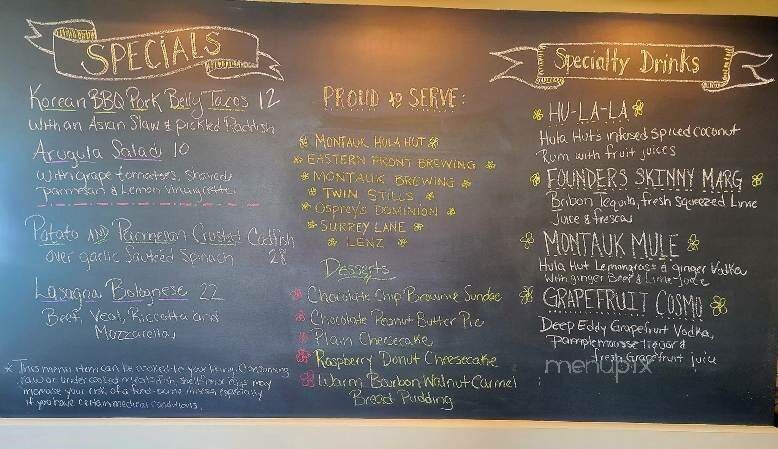 SPECIALS
Korean BBQ Pork Belly Tacos 12
with an Asian Slaw & pickled Raddish
Arugula Salad 10
with grape tomatoes, shaved
parmesan & Lemon Vinaigrette
Potato AND Parmesan Crusted Codfish
over garlic Sauteed Spinach 28
Lasagna Bolognese 22
Beef, Veal, Riccotta and
Mozzarella
* This menu item can be cooked to your liking. Consuming
raw or undercooked meats, fish, shellfish or eggs may
increase your risk of a food-borne illness, especially
if you have certain medical conditions.
PROUD to SERVE:
MONTAUK HULA HUT
EASTERN FRONT BREWING
MONTAUK BREWING
TWIN STILLS
Osprey's DOMINION
SURREY LANE
LENZ
Desserts
Chocolate Chip Brownie Sundae
Chocolate Peanut Butter Pie
Plain Cheesecake
Raspberry Donut Cheesecake
Warm Bourbon Walnut Carmel
Bread Pudding
Specialty Drinks
HU-LA-LA
Hula Huts infused spiced coconut
Rum with fruit juices
FOUNDERS SKINNY MARG
Bribon Tequila, fresh squeezed Lime
Juice & fresca
MONTAUK MULE
Hula Hut Lemongrass & ginger Vodka
with ginger Beer & Lime juice
GRAPEFRUIT COSMO
Deep Eddy Grapefruit Vodka,
Pamplemousse liquor &
fresh Grapefruit juice
menupix